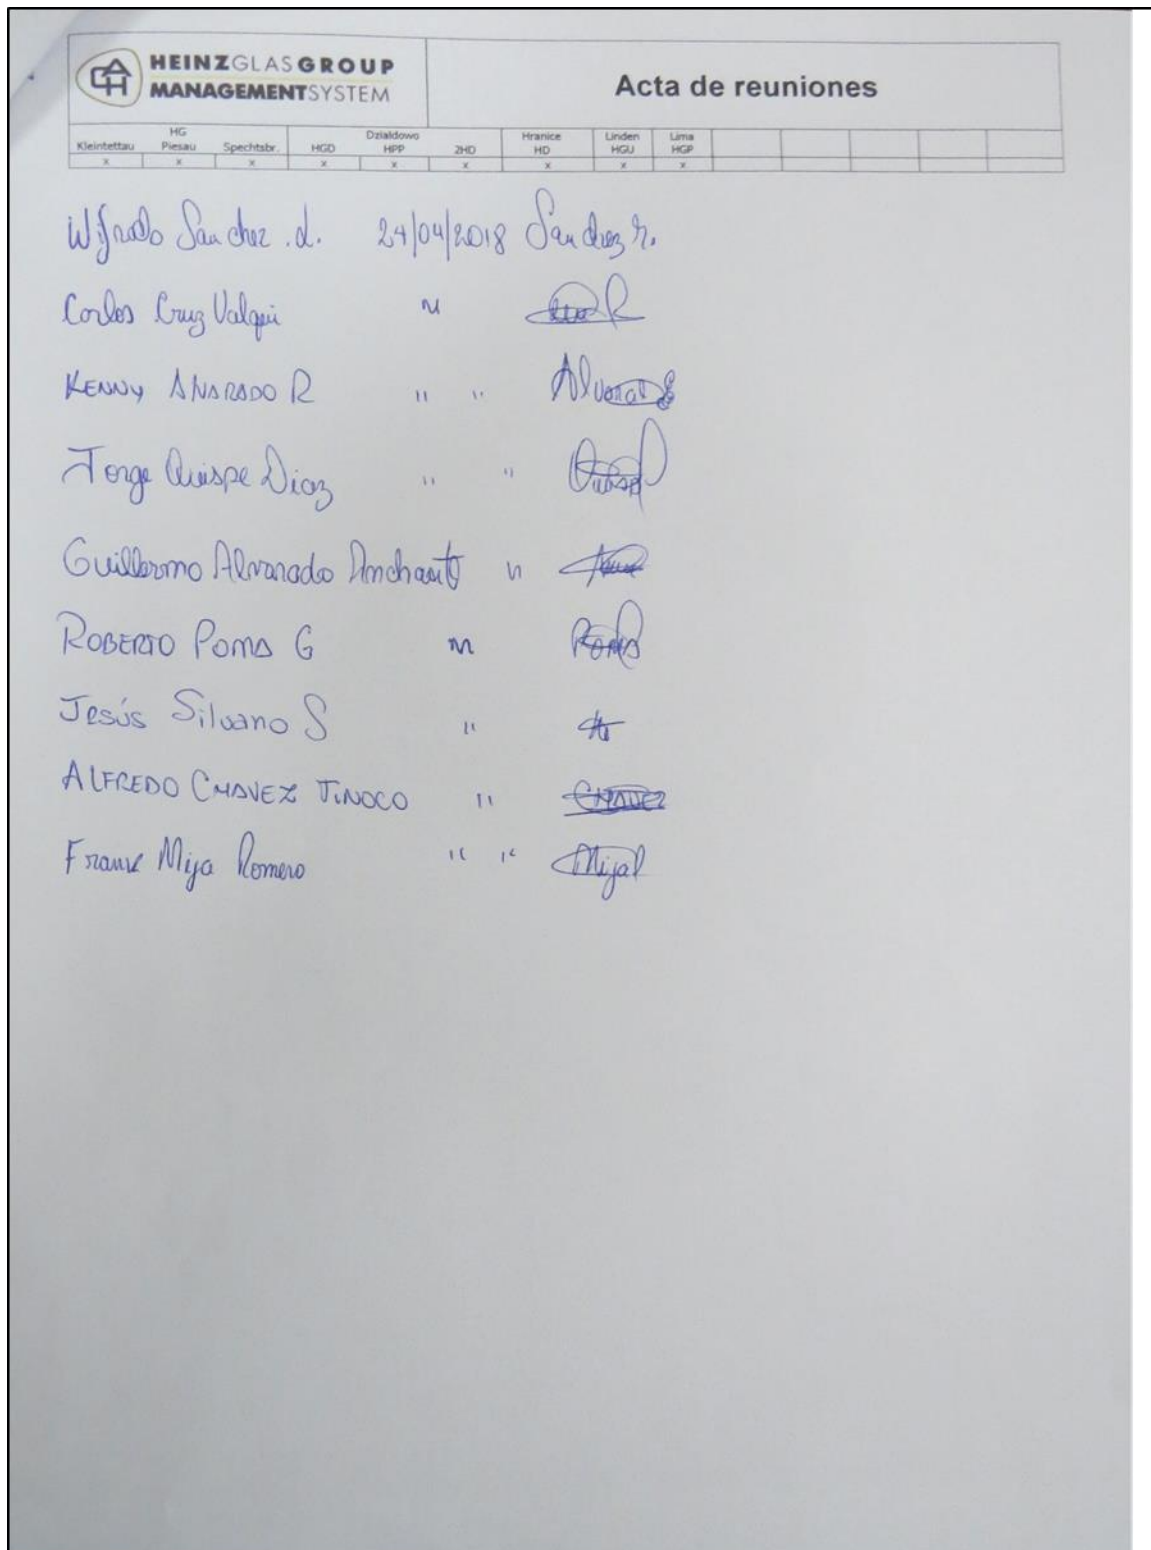 HEINZGLASGROUP
MANAGEMENTSYSTEM
Acta de reuniones
HG Dzialdowo Hranice Linden Lima
Kleintettau Piesau Spechtsbr. HGD HPP 2HD HD HGU HGP
x x x x x x x x x
Wifredo Sanchez .d. 24/04/2018 Sanchez r.
Carlos Cruz Valqui "
KENNY ALVARADO R " " Alvarado
Jorge Quispe Diaz " " Quispe
Guillermo Alvarado Anchante "
ROBERTO POMA G " Poma
Jesús Silvano S "
ALFREDO CHAVEZ TINOCO " CHAVEZ
Frank Mija Romero " " Mija R